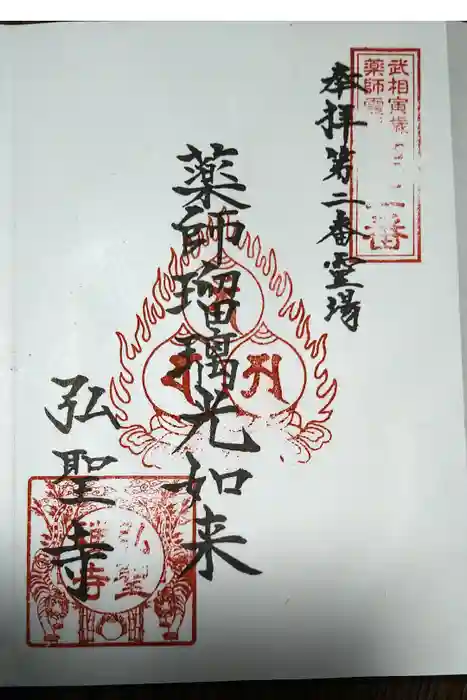 武相寅歳
薬師霊
番
奉拝第二番霊場
薬師瑠璃光如来
弘聖寺
弘聖
寺